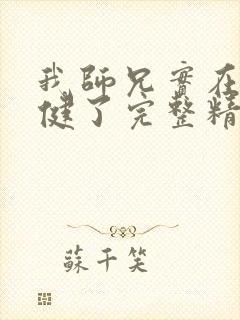 我師兄實在
健了完整精
蘇千笑